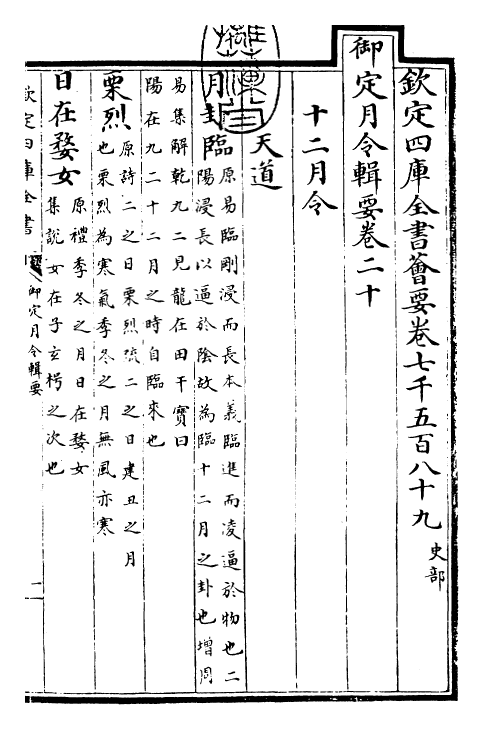 欽定四庫全書薈要卷七千五百八十九 史部
御定月令輯要卷二十
十二月令
天道
月卦臨原易臨剛浸而長本義臨進而凌逼於物也二
陽浸長以逼於陰故為臨十二月之卦也增周
易集解乾九二見龍在田干寶曰
陽在九二十二月之時自臨來也
栗烈原詩二之日栗烈疏二之日建丑之月
也栗烈為寒氣季冬之月無風亦寒
日在婺女原禮季冬之月日在婺女
集說女在子玄枵之次也
欽定四庫全書
御定月令輯要